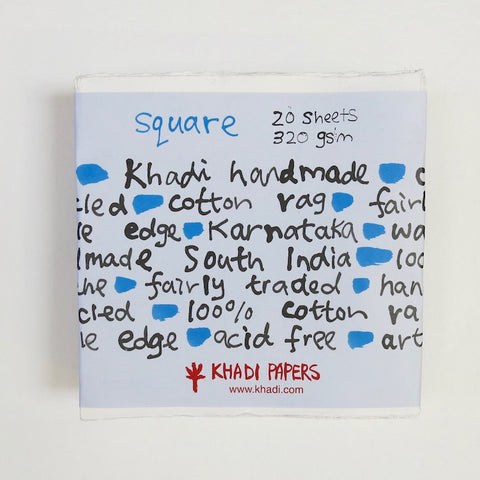 square
20 sheets
320 gsm
Khadi handmade c
cled cotton rag fairl
e edge Karnataka wa
dmade South India 100
he fairly traded han
cled 100% cotton ra
e edge acid free art
KHADI PAPERS
www.khadi.com